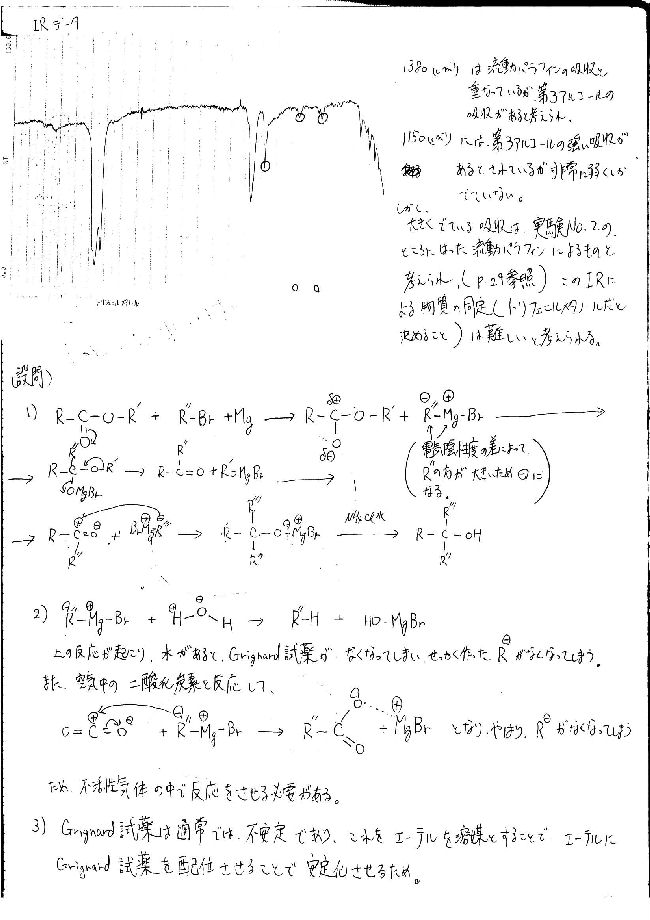 IRデータ
1380(cm⁻¹)は流動パラフィンの吸収と
重なっているが第3アルコールの
吸収があると考えられ、
1150(cm⁻¹)には、第3アルコールの強い吸収が
あるとされているが非常に弱くしか
でていない。
しかし、
大きくでている吸収は、実験No.2の
ところにはった流動パラフィンによるものと
考えられ、(p.29参照) このIRに
よる物質の同定(トリフェニルメタノールだと
決めること)は難しいと考えられる。
(設問)
1) R-C-O-R' + R''-Br + Mg → R-C-O-R' + R''-Mg-Br →
O δ+ O δ⊖ ⊖ ⊕
(電気陰性度の差によって、
R''の方が大きいため⊖に
なる。)
R''
→ R-C-O-R' → R-C=O + R''-MgBr →
OMgBr
R'' R''
→ R-C=O + BrMgR'' → R-C-O MgBr → R-C-OH
R'' R'' R''
2) R''-Mg-Br + H-O-H → R''-H + HO-MgBr
上の反応が起こり、水があると、Grignard試薬が なくなってしまい せっかく作った R⊖ がなくなってしまう。
また、空気中の 二酸化炭素と反応して、
O=C=O + R''-Mg-Br → R''-C O O MgBr となり、やはり、R⊖ がなくなってしまう
ため、不活性気体の中で反応をさせる必要がある。
3) Grignard試薬は通常では、不安定であり、これをエーテルを溶媒とすることで エーテルに
Grignard 試薬を配位させることで 安定化させるため。